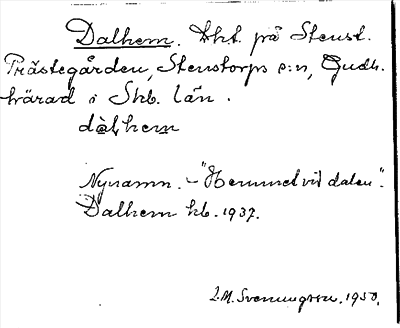 Dalhem. Lht. på Stenst.
Prästegården, Stenstorps s:n, Gudh.
härad i Skb. län.
dàlhem
Nynamn. - "Hemmet vid dalen".
Dalhem kb. 1937.
L.M. Svenungsson. 1950.